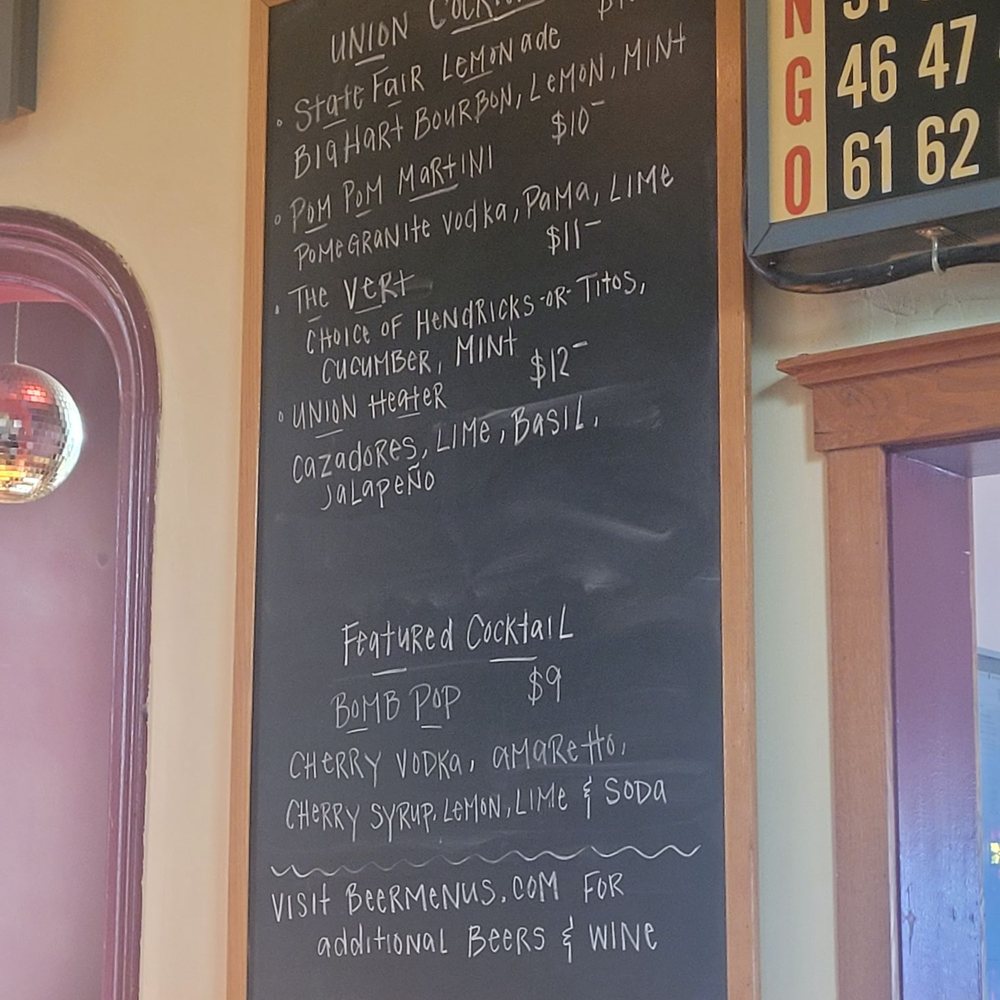 UNION
State Fair Lemonade
Big Hart Bourbon, Lemon, Mint
$10
Pom Pom Martini
Pomegranite Vodka, Pama, Lime
$11
The Vert
Choice of Hendricks -or- Titos,
Cucumber, Mint
$12
Union Heater
Cazadores, Lime, Basil,
Jalapeño
Featured Cocktail
Bomb Pop $9
Cherry Vodka, Amaretto,
Cherry Syrup, Lemon, Lime & Soda
Visit BeerMenus.com for
additional Beers & Wine
N
G 46 47
O 61 62